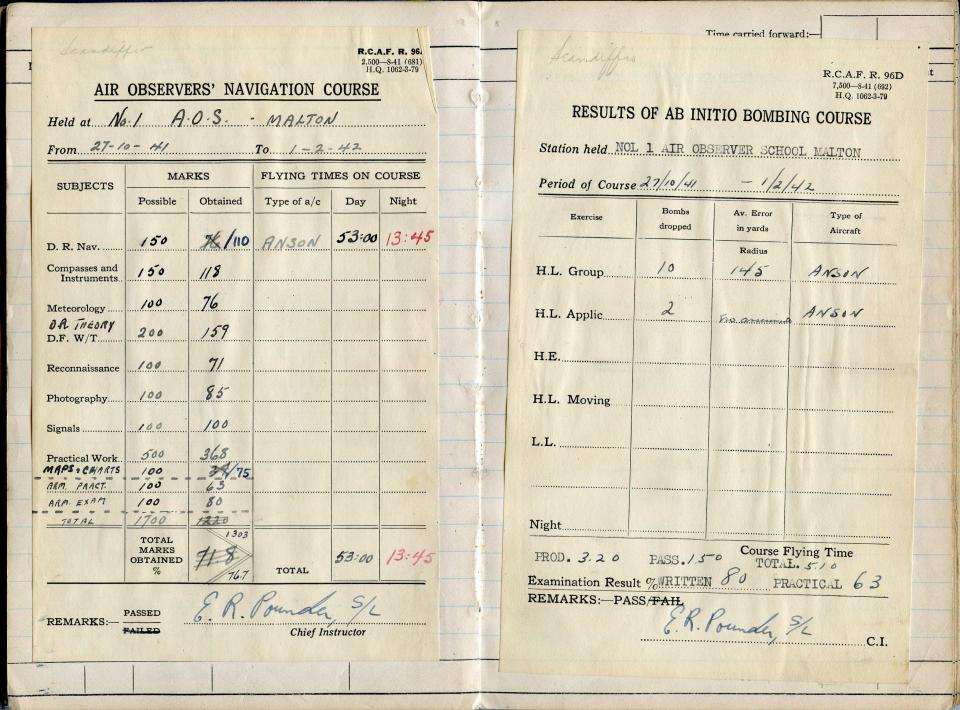 Scandiffio
R.C.A.F. R. 96
2,500—8-41 (681)
H.Q. 1062-3-79
AIR OBSERVERS' NAVIGATION COURSE
Held at No. 1 A.O.S. - MALTON
From 27-10-41 To 1-2-42
SUBJECTS MARKS FLYING TIMES ON COURSE
Possible Obtained Type of a/c Day Night
D. R. Nav. 150 76/110 ANSON 53:00 13:45
Compasses and
Instruments 150 118
Meteorology 100 76
DR THEORY
D.F. W/T 200 159
Reconnaissance 100 71
Photography 100 85
Signals 100 100
Practical Work 500 368
MAPS & CHARTS 100 /75
ARM. PRACT. 100 63
ARM. EXAM 100 80
TOTAL 1700 1220
1303
TOTAL
MARKS
OBTAINED
% 71.8 TOTAL 53:00 13:45
76.7
REMARKS:— PASSED
FAILED
E. R. Pounder, S/L
Chief Instructor
Time carried forward:—
Scandiffio
R.C.A.F. R. 96D
7,500—8-41 (692)
H.Q. 1062-3-79
RESULTS OF AB INITIO BOMBING COURSE
Station held NOL 1 AIR OBSERVER SCHOOL MALTON
Period of Course 27/10/41 - 1/2/42
Exercise Bombs dropped Av. Error in yards Type of Aircraft
Radius
H.L. Group 10 145 ANSON
H.L. Applic 2 ANSON
H.E.
H.L. Moving
L.L.
Night
PROD. 3.20 PASS. 1.50 Course Flying Time
TOTAL. 5.10
Examination Result % WRITTEN 80 PRACTICAL 63
REMARKS:—PASS/FAIL
E.R. Pounder, S/L
C.I.